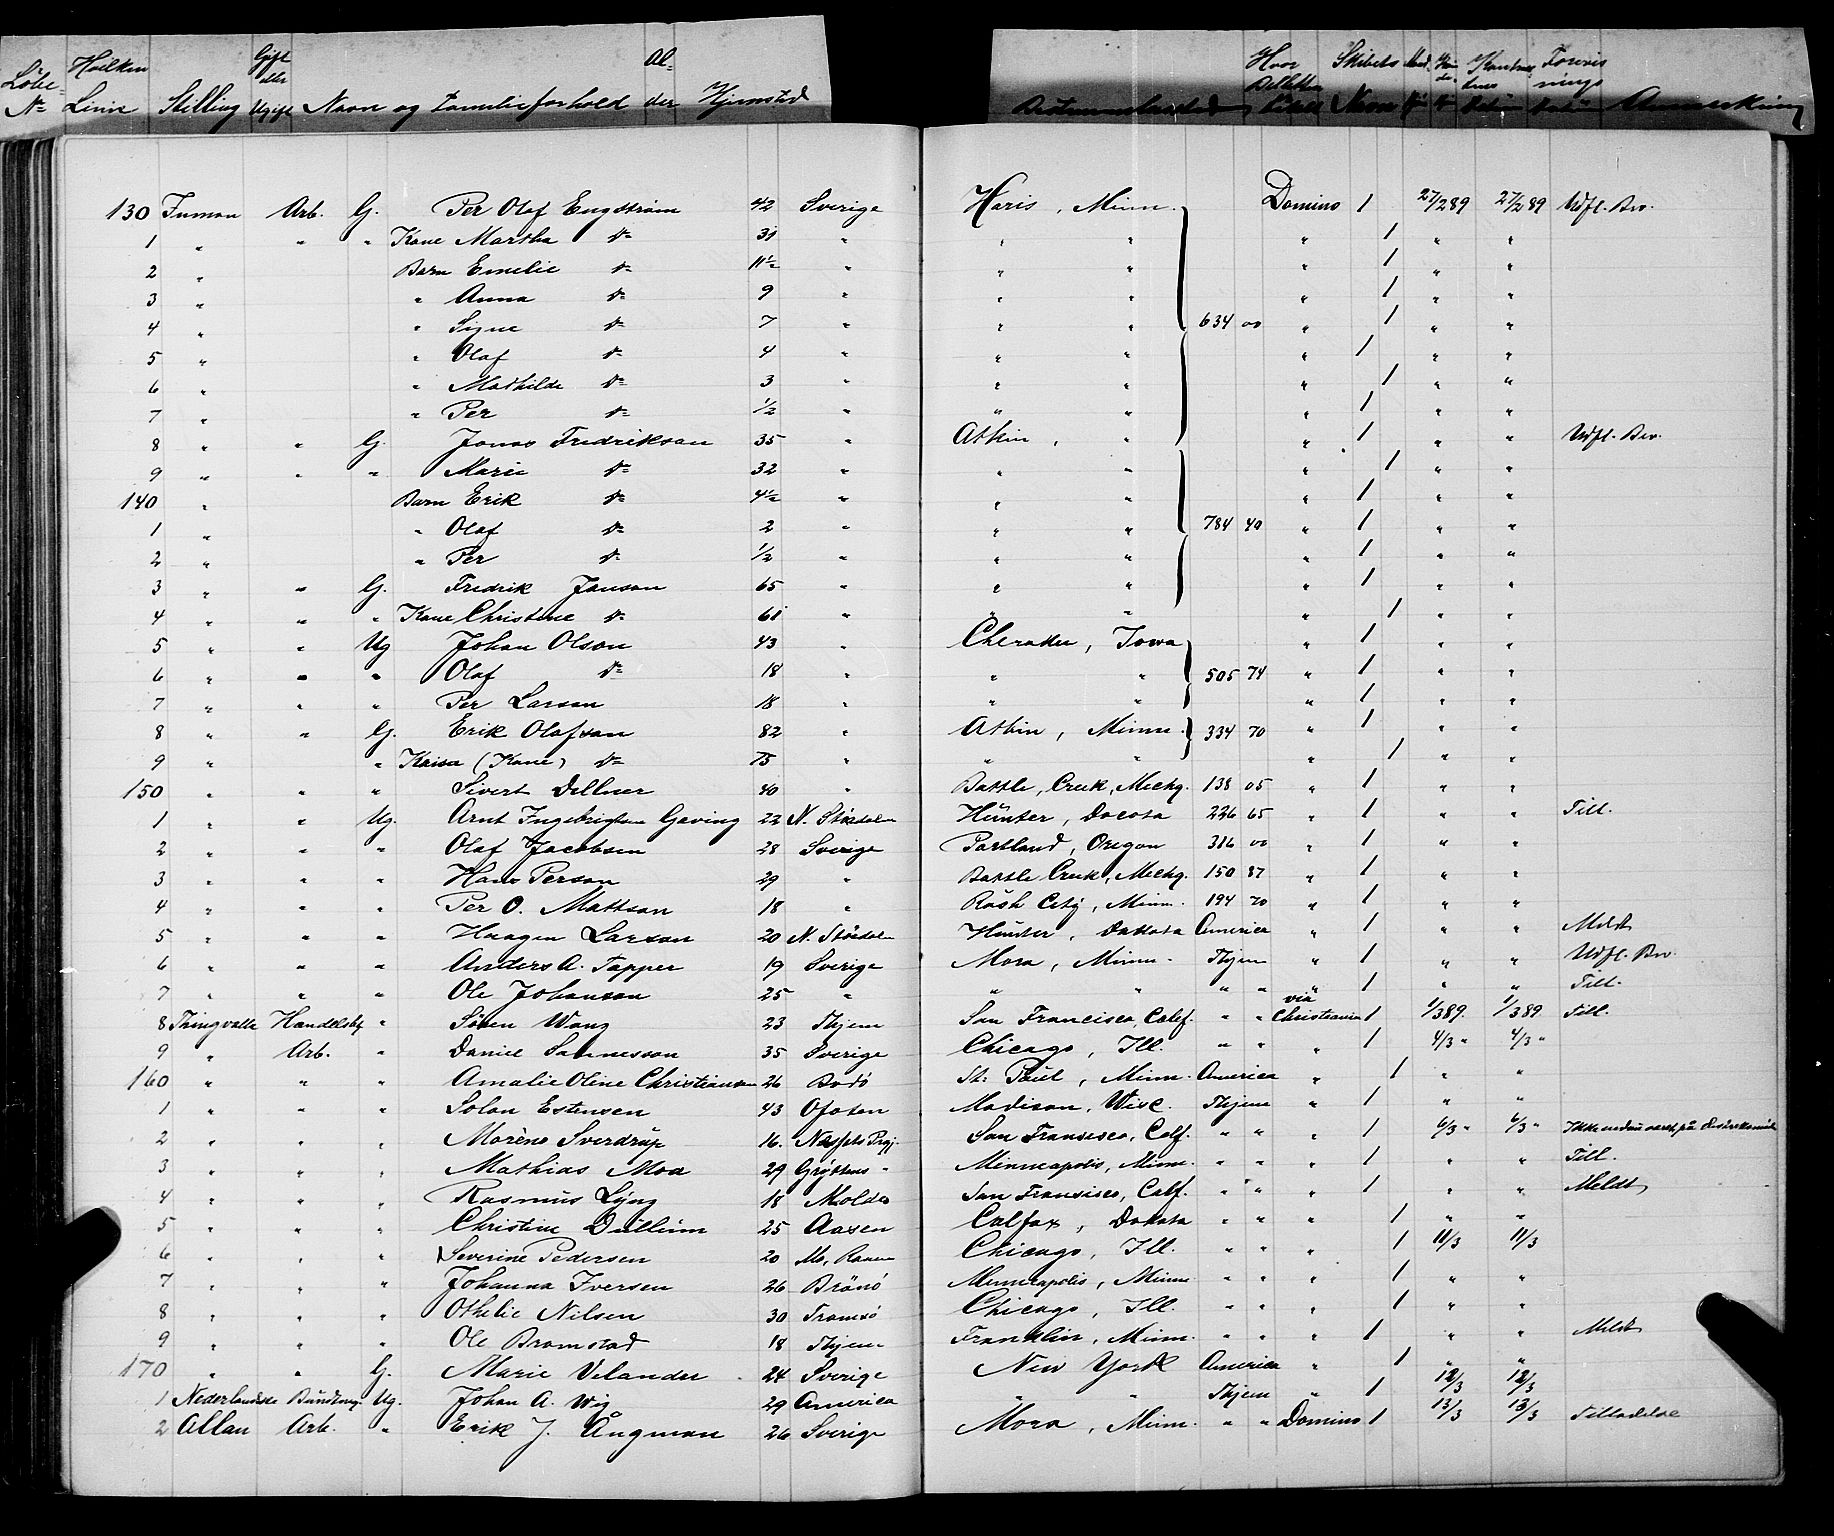 Löbe- Hvilken Gift Al- Hvor Skibets
No Linie Stilling eller Ugift Navn og Familieforhold der Hjemsted Bestemmelsessted Billetten Navn Anmerkning
130 Inman Arb. G. Per Olof Engström 42 Sverige Haris, Minn. Domino 1 27/2 89 27/2 89 Udfl. Bev.
1 " " " Kone Martha do 31 " " " " 1 " "
2 " Barn Emelie do 11½ " " " " 1 " "
3 " " Anna do 9 " " " " 1 " "
4 " " Signe do 7 " " " 634 00 " 1 " "
5 " " Olaf do 4 " " " " 1 " "
6 " " Mathilde do 3 " " " " 1 " "
7 " " Per do ½ " " " " 1 " "
8 " " G. Jonas Fredrikson 35 " Atkin, " " 1 " " Udfl. Bev.
9 " " " Marie do 32 " " " " 1 " "
140 " Barn Erik do 4½ " " " " 1 " "
1 " " Olaf do 2 " " " 784 40 " 1 " "
2 " " Per do ½ " " " " 1 " "
3 " " G. Fredrik Janson 65 " " " " 1 " "
4 " " " Kone Christine do 61 " " " " 1 " "
5 " " Ug Johan Olson 43 " Cherokee, Iowa " 1 " "
6 " " " Olaf do 18 " " " 505 74 " 1 " "
7 " " " Per Larson 18 " " " " 1 " "
8 " " G. Erik Olafson 82 " Atkin, Minn. 334 70 " 1 " "
9 " " Kaisa (Kone) do 75 " " " " 1 " "
150 " " " Sivert Dellner 40 " Battle, Creek, Michg. 138 05 " 1 " "
1 " " Ug. Arnt Ingebrigtsen Geving 22 N. Stördalen Hunter, Dacota 226 65 " 1 " " Till.
2 " " " Olaf Jacobsen 28 Sverige Portland, Oregon 316 00 " 1 " "
3 " " " Hans Person 29 " Battle Creek, Michg. 150 87 " 1 " "
4 " " " Per O. Mattson 18 " Rush City, Minn. 194 70 " 1 " "
5 " " " Haagen Larson 20 N. Stördalen Hunter, Dakota America " 1 " " Meldt
6 " " " Anders A. Tapper 19 Sverige Mora, Minn. Thjem " 1 " " Udfl. Bev.
7 " " " Ole Johanson 25 " " " " " " 1 " " Till.
8 Thingvalla Handelsbt " Sören Wang 23 Thjem San Francisco, Calif. " " via Christiania 1 1/3 89 1/3 89 Till.
9 " Arb. " Daniel Sannesson 35 Sverige Chicago, Ill. " " " 1 4/3 " 4/3 "
160 " " " Amalie Oline Christiansen 26 Bodö St. Paul, Minn. America " 1 " "
1 " " " Solan Estensen 43 Ofoten Madison, Wisc. Thjem " 1 " "
2 " " " Moréns Sverdrup 16. San Fransisco, Calf. " " " 1 6/3 " 6/3 "
3 " " " Mathias Moa 29 Gryttens " Minneapolis, Minn. " " " 1 " " Till.
4 " " " Rasmus Lyng 18 Molde San Fransisco, Calf. " " " 1 " " Meldt
5 " " " Christine Dullum 25 Aasen Colfax, Dakota " " " 1 " "
6 " " " Severine Pedersen 20 Mo, Ranen Chicago, Ill. " " " 1 11/3 11/3
7 " " " Johanna Iversen 26 Brönö Minneapolis, Minn " " " 1 " "
8 " " " Othelie Nilsen 30 Tromsö Chicago, Ill. " " " 1 " "
9 " " " Ole Bromstad 18 Thjem Franklin, Minn. " " " 1 " " Meldt
170 " " G. Marie Velander 24 Sverige New York America " 1 " "
1 Nederlandske Bundtmg. Ug. Johan A. Wig 29 America " " Thjem " 1 12/3 12/3
2 Allan Arb. " Erik J. Ångman 26 Sverige Mora, Minn. " " Domino 1 13/3 13/3 Tilladelse